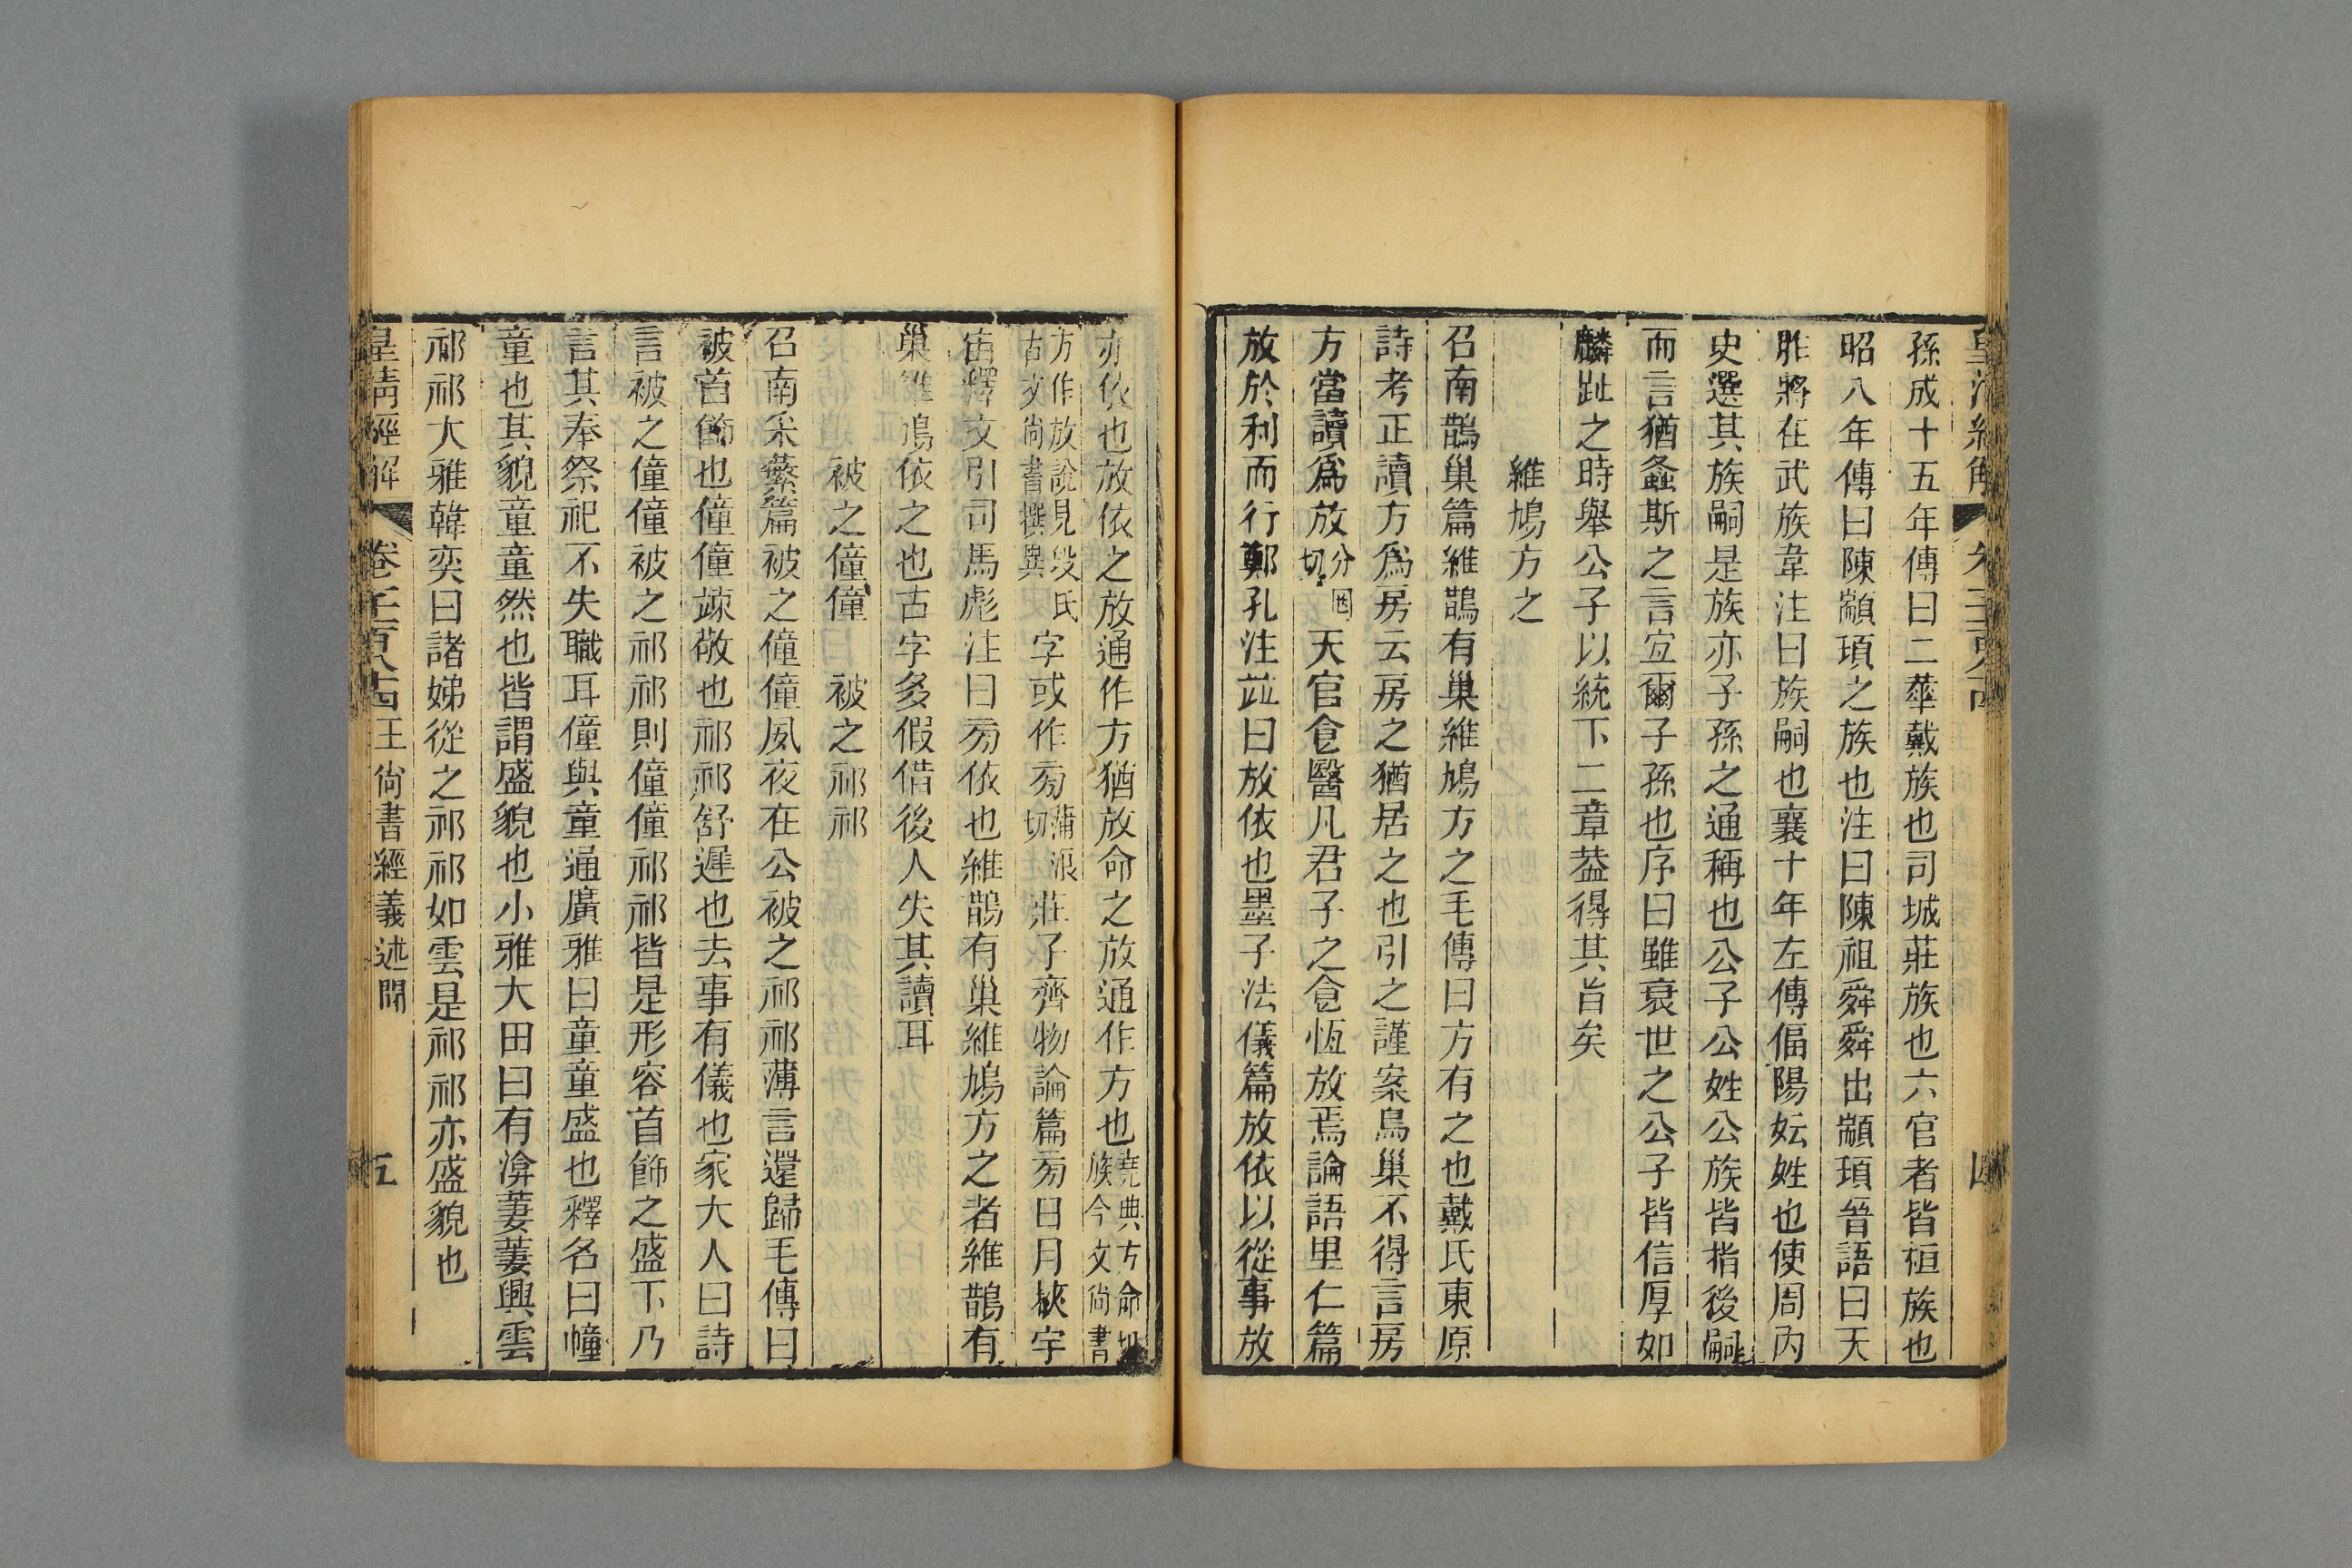 孫成十五年傳曰二華戴族也司城莊族也六官者皆桓族也
昭八年傳曰陳顓頊之族也注曰陳祖舜舜出顓頊晉語曰天
胙將在武族韋注曰族嗣也襄十年左傳偪陽妘姓也使周內
史選其族嗣是族亦子孫之通稱也公子公姓公族皆指後嗣
而言猶螽斯之言宜爾子孫也序曰雖衰世之公子皆信厚如
麟趾之時舉公子以統下二章葢得其旨矣
維鳩方之
召南鵲巢篇維鵲有巢維鳩方之毛傳曰方有之也戴氏東原
詩考正讀方爲房云房之猶居之也引之謹案鳥巢不得言房
方當讀爲放分
切天官食醫凡君子之食恆放焉論語里仁篇
放於利而行鄭孔注竝曰放依也墨子法儀篇放依以從事放
亦依也放依之放通作方猶放命之放通作方也堯典方命
族今文尙書
方作放說見段氏
古文尙書撰異字或作㫄蒲浪
切莊子齊物論篇㫄日月挾宇
宙釋文引司馬彪注曰㫄依也維鵲有巢維鳩方之者維鵲有
巢維鳩依之也古字多假借後人失其讀耳
被之僮僮 被之祁祁
召南采蘩篇被之僮僮夙夜在公被之祁祁薄言還歸毛傳曰
被首飾也僮僮竦敬也祁祁舒遲也去事有儀也家大人曰詩
言被之僮僮被之祁祁則僮僮祁祁皆是形容首飾之盛下乃
言其奉祭祀不失職耳僮與童通廣雅曰童童盛也釋名曰幢
童也其貌童童然也皆謂盛貌也小雅大田曰有渰萋萋興雲
祁祁大雅韓奕曰諸娣從之祁祁如雲是祁祁亦盛貌也
皇清經解 卷 王尙書經義述聞 五